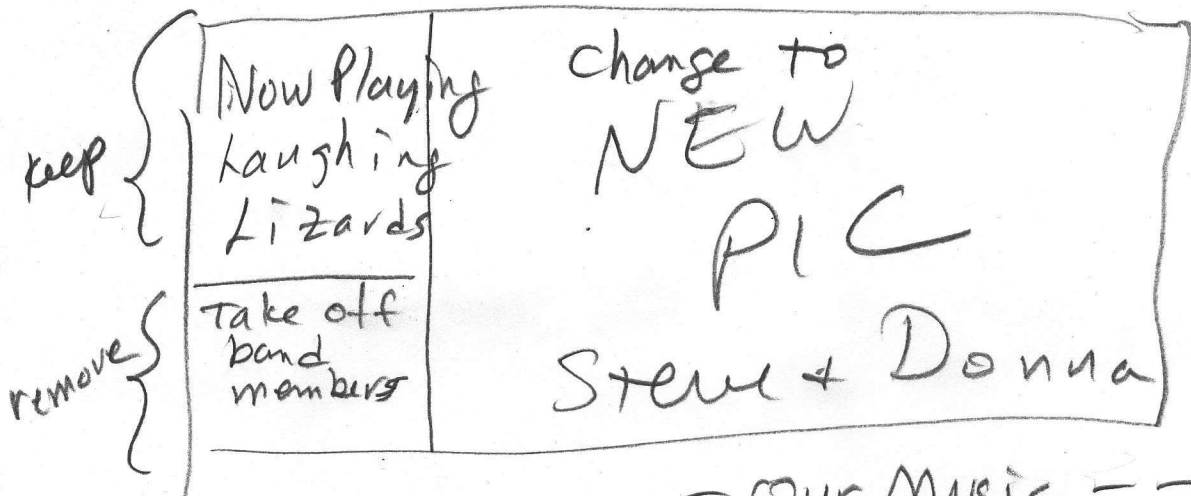 keep
Now Playing
Laughing
Lizards
remove
Take off
band
members
change to
NEW
PIC
Steve + Donna
Music - -